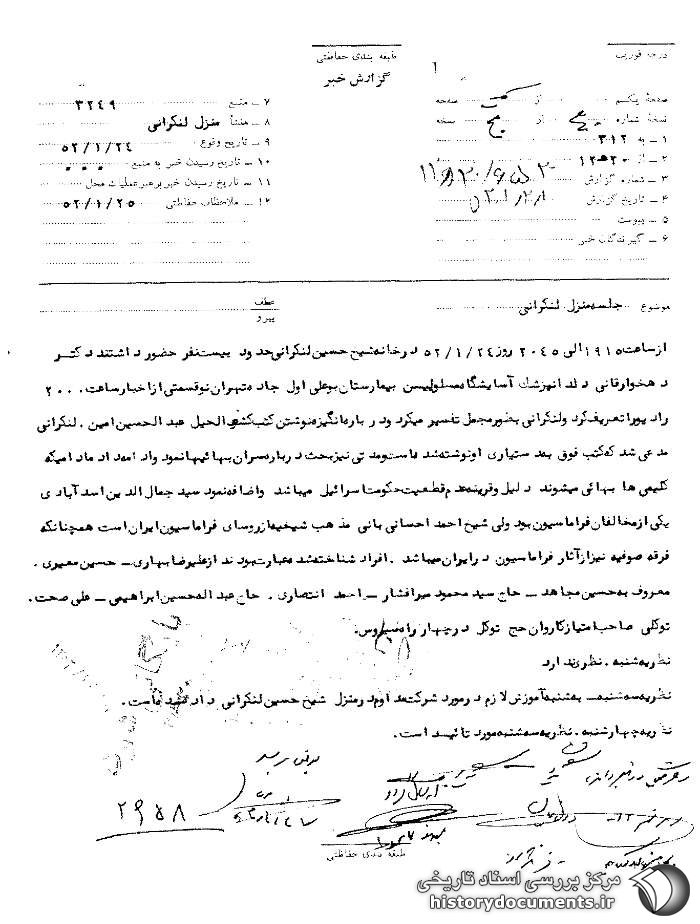 درجه فوریت
طبقه بندی حفاظتی
گزارش خبر
صفحهٔ یکم از صفحه
نسخهٔ شماره از نسخه
۱ ـ به ۳۱۲
۲ ـ از ۱۲ ه ۲۰
۳ ـ شماره گزارش
۴ ـ تاریخ گزارش
۵ ـ پیوست
۶ ـ گیرندگان خبر
۷ ـ منبع ۳۲۴۹
۸ ـ منشأ منزل لنکرانی
۹ ـ تاریخ وقوع ۵۲/۱/۲۴
۱۰ ـ تاریخ رسیدن خبر به منبع
۱۱ ـ تاریخ رسیدن خبر برهبر عملیات محل
۱۲ ـ ملاحظات حفاظتی ۵۲/۱/۲۵
موضوع جلسه منزل لنکرانی
عطف
پیرو
از ساعت ۱۹۱۵ الی ۲۰۴۵ روز ۵۲/۱/۲۴ در خانه شیخ حسین لنکرانی حدود بیست نفر حضور داشتند دکتر
دهخوارقانی دندانپزشک آسایشگاه مسلولیسن بیمارستان بوعلی اول جاده تهران نو قسمتی از اخبار ساعت ۲۰۰۰
رادیو را تعریف کرد ولنکرانی بطور مجمل تفسیر میکرد و درباره انگیزه نوشتن کتب کشف الحیل عبد الحسین امین . لنکرانی
مدعی شد که کتب فوق بعد ستیاری او نوشته شده است و مدتی نیز بحث درباره سران بهائیها نمود وادامه داد مادامیکه
کلیمی ها بهائی میشوند دلیل و قرینه عدم قطعیت حکومت اسرائیل میباشد واضافه نمود سید جمال الدین اسد آبادی
یکی از مخالفان فراماسیون بود ولی شیخ احمد احسانی بانی مذهب شیخیه از روسای فراماسیون ایران است همچنانکه
فرقه صوفیه نیز از آثار فراماسیون در ایران میباشد . افراد شناخته شده عبارت بودند از علیرضا بهاری ـ حسین معیری .
معروف به حسین مجاهد ـ حاج سید محمود میرافشار ـ احمد انتصاری . حاج عبد الحسین ابراهیمی ـ علی صحت .
توکلی صاحب امتیاز کاروان حج توکل در چهارراه سیروس.
نظریه شنبه . نظری ندارد
نظریه سه شنبه ـ به شنبه آموزش لازم در مورد شرکت مداوم در منزل شیخ حسین لنکرانی داده شده است .
نظریه چهارشنبه . نظریه سه شنبه مورد تائید است .
۲۹۵۸
طبقه بندی حفاظتی
مرکز بررسی اسناد تاریخی
historydocuments.ir